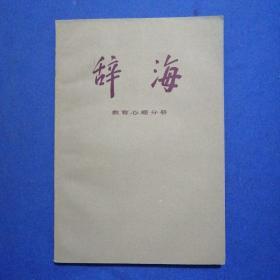 辞海
教育心理分册